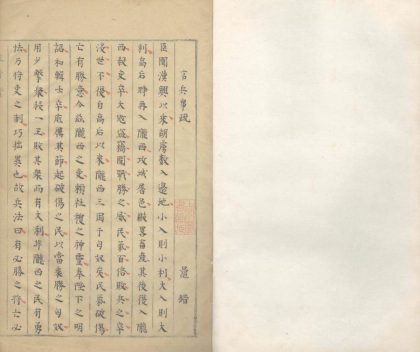 言兵事疏
鼂錯
臣聞漢興以來胡虜數入邊地小入則小利大入則大
利高后時再入隴西攻城屠邑敺畧畜產其後復入隴
西殺吏卒大寇盜竊聞戰勝之威民氣百倍敗兵之卒
沒世不復自高后以來隴西三困于匈奴矣民氣破傷
亡有勝意今茲隴西之吏賴社稷之神靈奉陛下之明
詔和輯士卒底厲其節起破傷之民以當乘勝之匈奴
用少擊衆殺一王敗其衆而有大利非隴西之民有勇
怯乃將吏之制巧拙異也故兵法曰有必勝之將亡必